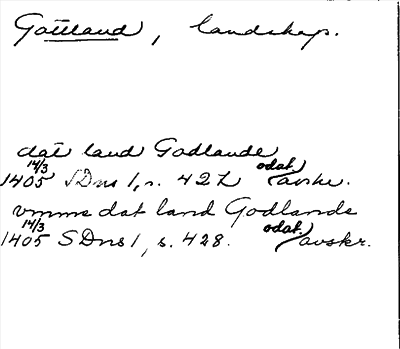 Gottland, landskap.
dat land Godlande
14/3 1405 SDns 1, s. 427 odat. avskr.
vmme dat land Godlande
14/3 1405 SDns 1, s. 428. odat. avskr.